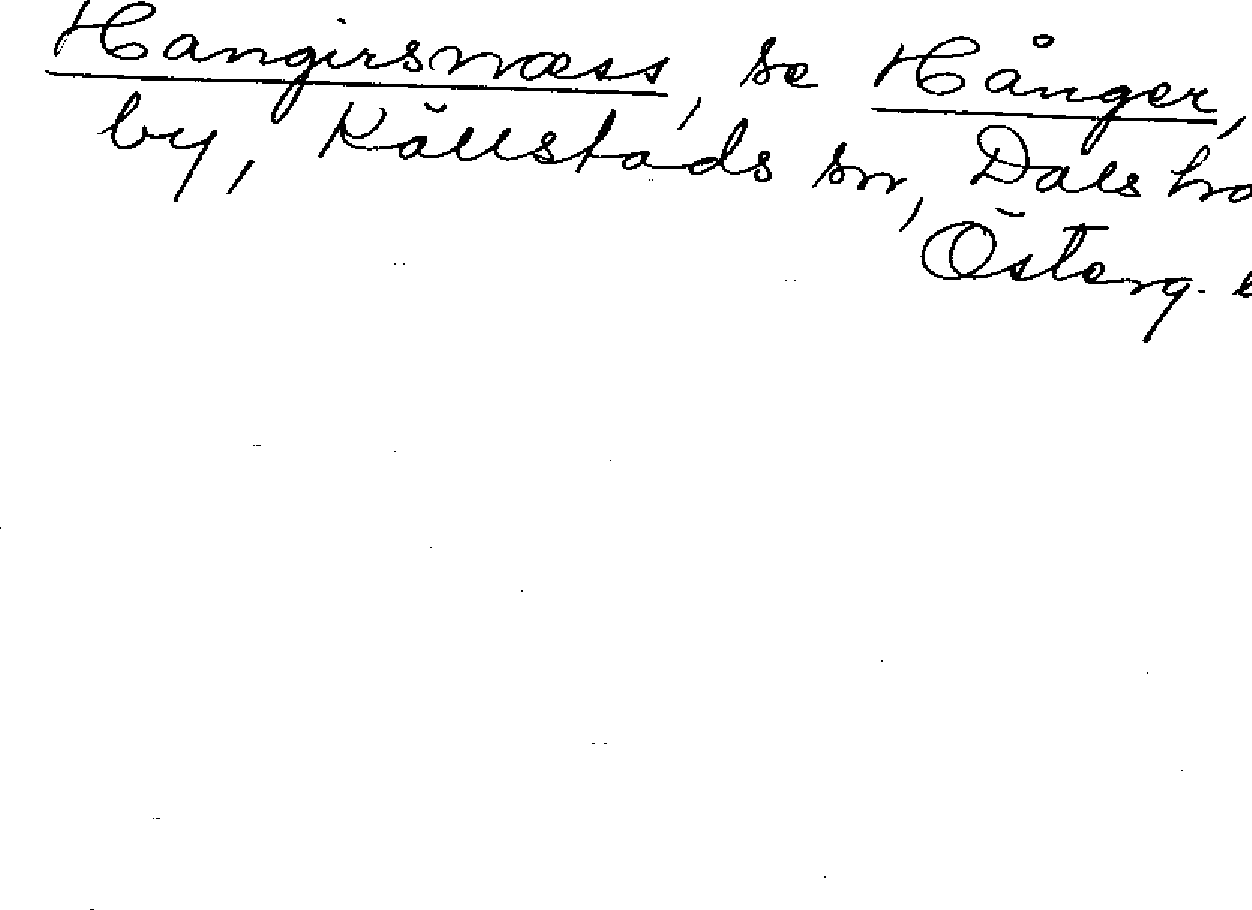 Hangirsnæss, se Hånger,
by, Källstads sn, Dals
Österg.